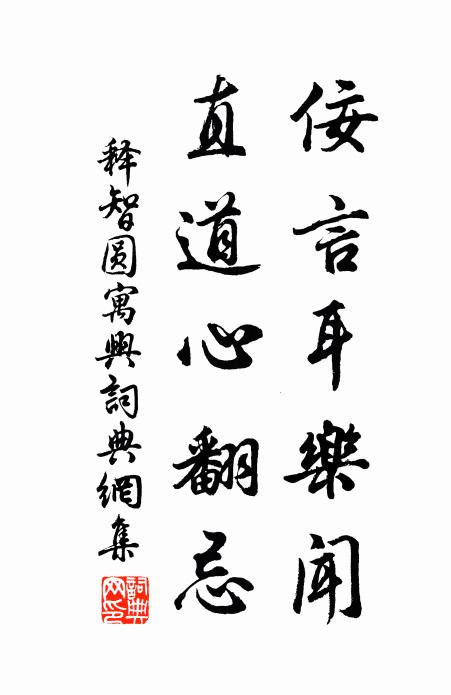 佞言耳樂聞
直道心翻忌
释智圆寓興詞典網集
詞典網印